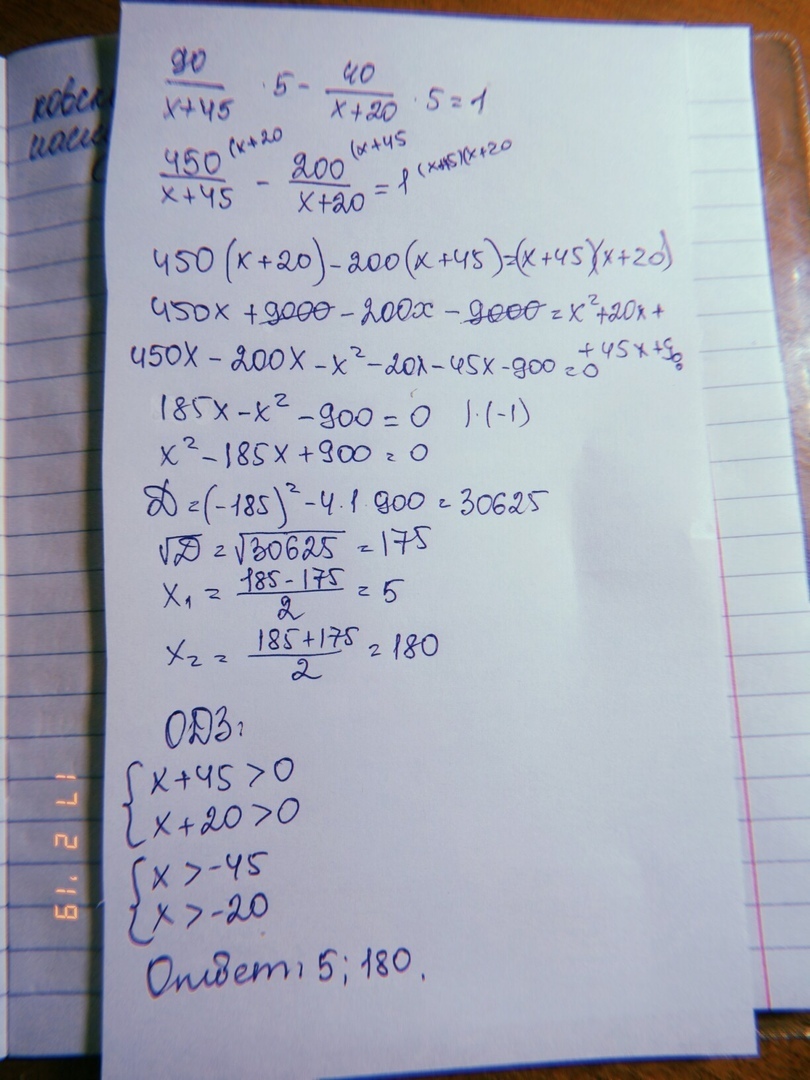 ковск
насл
90/(x+45) · 5 - 40/(x+20) · 5 = 1
450/(x+45) (x+20 - 200/(x+20) (x+45 = 1 (x+45)(x+20
450(x+20)-200(x+45)=(x+45)(x+20)
450x + 9000 - 200x - 9000 = x²+20x+
+45x+900
450x - 200x - x² - 20x - 45x - 900 = 0
185x - x² - 900 = 0 |·(-1)
x² - 185x + 900 = 0
D = (-185)² - 4·1·900 = 30625
√D = √30625 = 175
x₁ = (185-175)/2 = 5
x₂ = (185+175)/2 = 180
ОДЗ:
{ x+45 > 0
x+20 > 0
{ x > -45
x > -20
Ответ: 5; 180.
17 2 '19